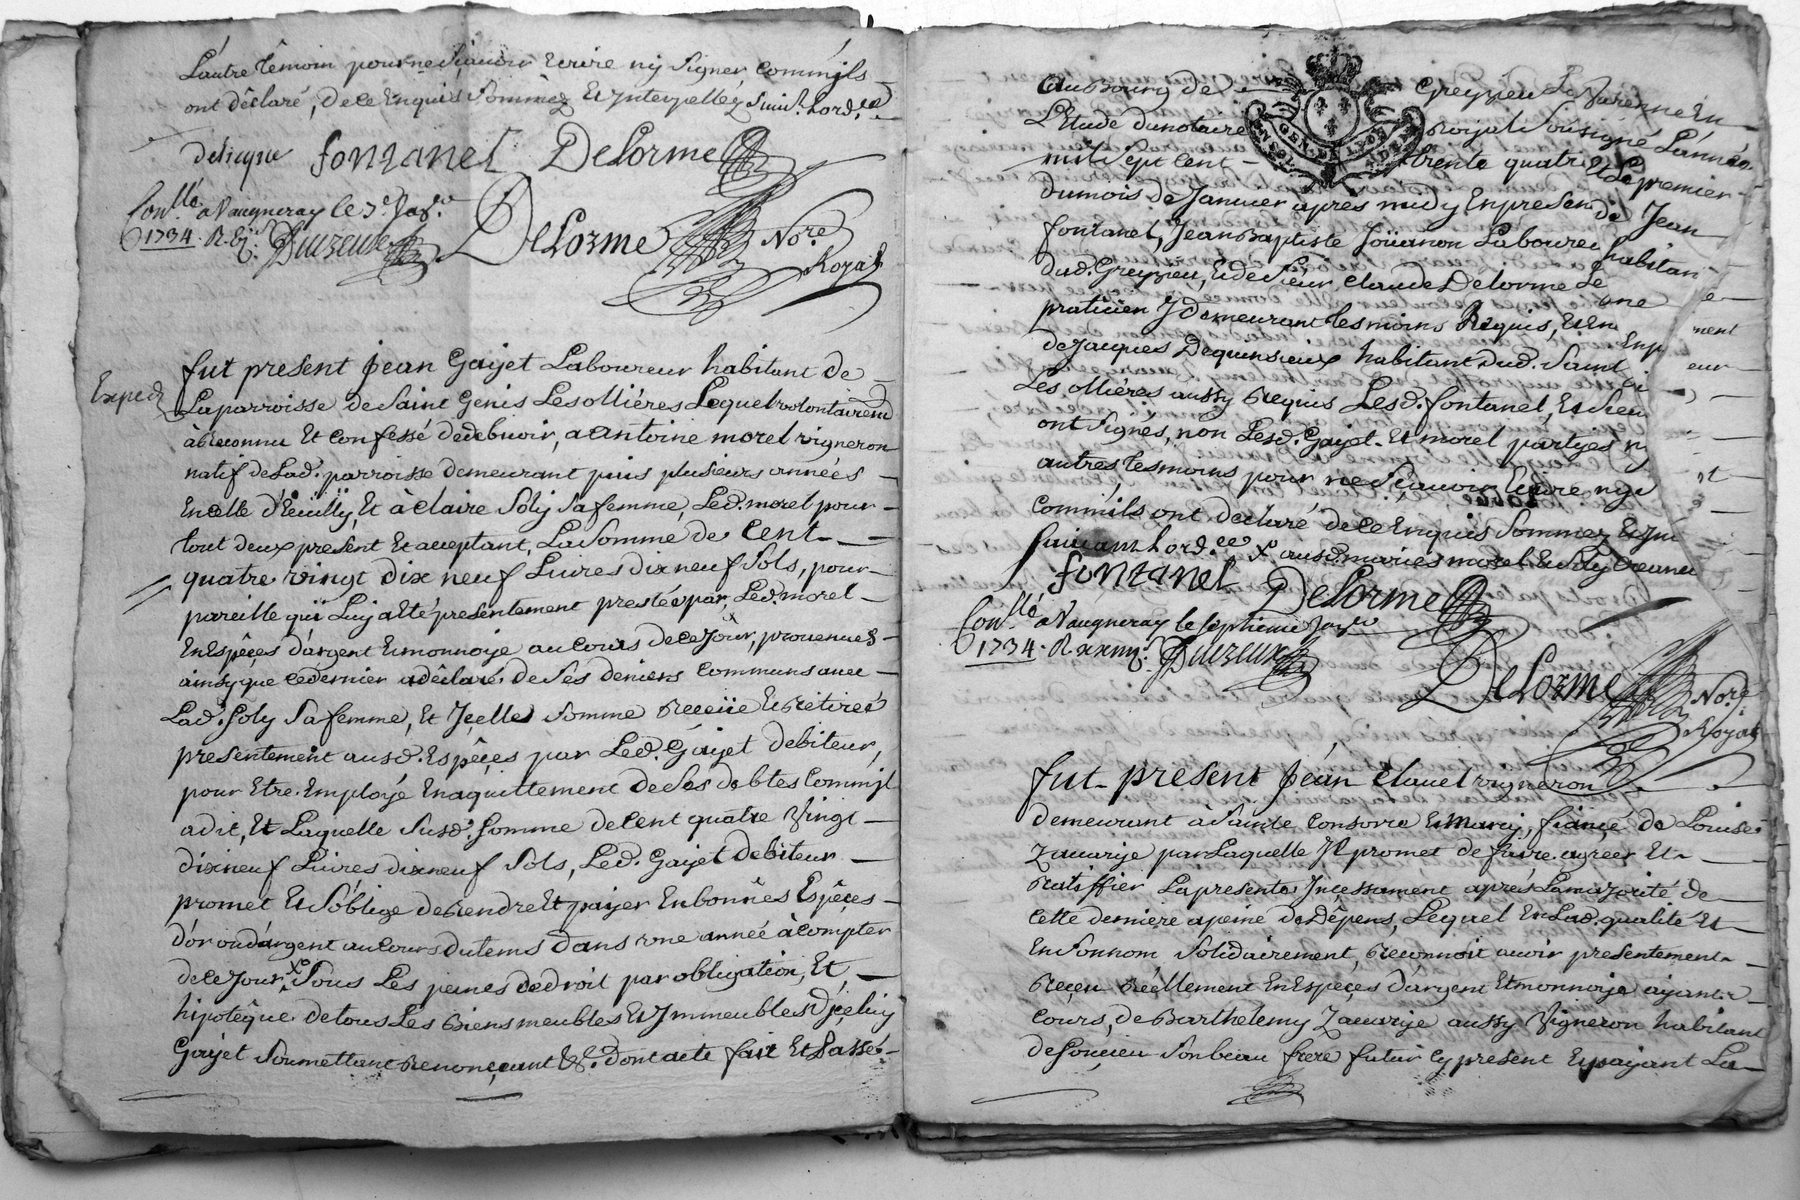 L'autre têmoin pour ne Sçavoir Ecrire ny Signer, comm'ils
ont dêclaré, de ce Enquis Sommez Et Interpellez Suiv.t Lord.ce
delicque fontanel DeLorme
Con.llé a Vaugneray le 7.e Jav.er
1734. R. Duzeux DeLorme No.re
Royal
Exped
fut present Jean Gayet Laboureur habitant de
La parroisse de Saint Genis Les ollieres Lequel volontairem.t
à Reconnu Et confessé de debvoir, a Antoine morel vigneron
natif de Lad. parroisse demeurant puis plusieurs années
En celle d'Ecuilly, Et à claire Soly Sa femme, Led. morel pour
tout deux present Et acceptant, La Somme de Cent
quatre vingt dix neuf Livres dix neuf Sols, pour
pareille qui Luy a Eté presentement prestée par, Led. morel
En Espêçes d'argent Et monnoye au cours de ce Jour, provenues
ainsy que ce dernier a dêclaré, de Ses deniers communs avec
Lad. Soly Sa femme, Et Içelles Somme Reçeüe Et Retirée
presentement ausd. Espêçes par Led. Gayet debiteur,
pour Etre Employé En aquittement de Ses debtes Comm'jl
a dit, Et Laquelle Susd. Somme de Cent quatre Vingt
dix neuf Livres dix neuf Sols, Led. Gayet debiteur
promet Et S'oblige de Rendre Et payer En bonnes Espêçes
d'or ou d'argent au Cours du tems dans une année à compter
de ce Jour, X.o Sous Les peines de droit par obligation, Et
hipotêque de tous Les Biens meubles Et Immeubles d'içeluy
Gayet Soumettant Renonçant &c. dont acte fait Et Passé
Au Bourg de Greyzieu La Varenne En
L'Etude du notaire Royal Soûsigné L'année
mil Sept Cent trente quatre Et Le premier
du mois de Janvier après midy En presen de Jean
fontanel, Jean Baptiste Joüanon Laboure habitan
dud. Greyzieu, Et de Sieur Claude Delorme Le
praticien y demeurant tesmoins Requis, Et En one
de Jacques Dequinsieux habitant dud. Saint
Les ollières aussy Requis Lesd. fontanel, Et Sieu
ont Signés, non Lesd. Gayet Et morel partyes ny
autres tesmoins pour ne Sçavoir Ecrire ny
comm'ils ont declaré de ce Enquis Sommez Et In
Suivant Lord.ce X.o ausd. mariés morel Et Soly
fontanel DeLorme
Con.llé a Vaugneray le septieme Jav.er
1734. R. Duzeux
DeLorme No.re
Royal
fut present Jean Clavel vigneron
demeurant à Sainte Consorce Et Mary, fiancé de Louise
Zacarye par Laquelle Il promet de faire agreer Et
Ratiffier La presente Inçessament après La majorité de
cette derniere a peine de Dêpens, Lequel En Lad. qualité Et
En Son nom Solidairement, Reconnoit avoir presentement
Reçeu Réellement En Espêçes d'argent Et monnoye ayant
Cours, de Barthelemy Zacarye aussy Vigneron habitant
de Souçieu Son beau frere futur cy present Et payant La